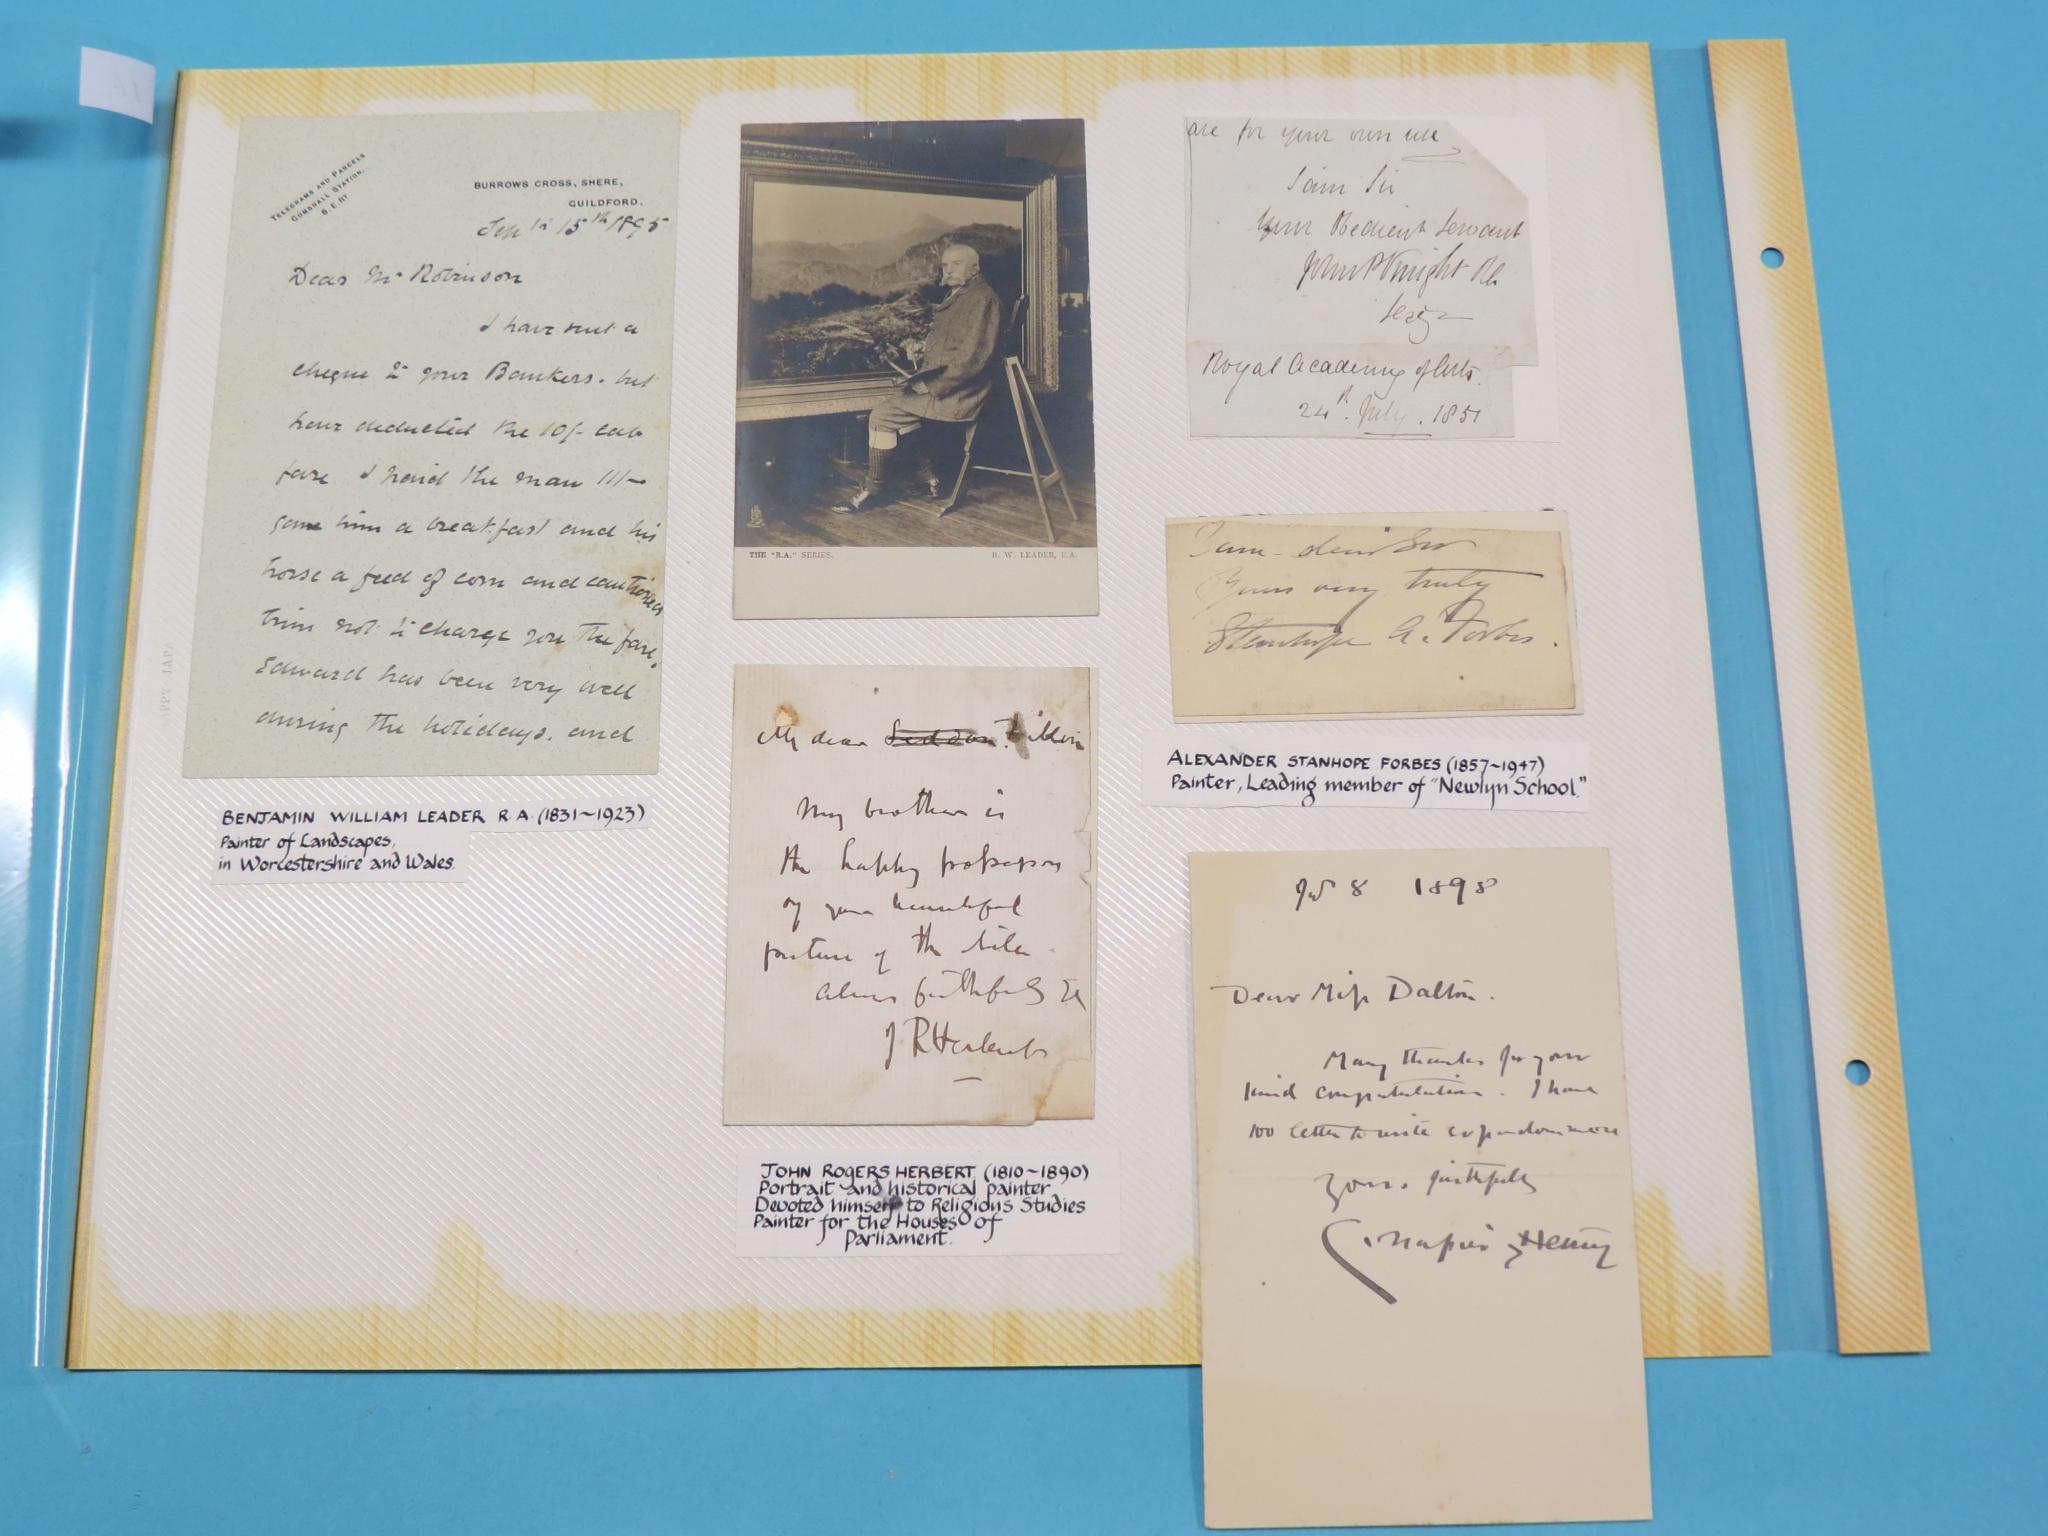 TELEGRAMS AND PARCELS
GOMSHALL STATION.
S.E.RY
BURROWS CROSS, SHERE,
GUILDFORD.
15th 1895
Dear Mr Robinson
I have sent a
cheque to your Bankers. but
have deducted the 10/- cab
fare I paid the man 11/-
gave him a breakfast and his
horse a feed of corn and cautioned
him not to charge you the fare.
Edward has been very well
during the holidays. and
BENJAMIN WILLIAM LEADER R.A. (1831~1923)
Painter of Landscapes,
in Worcestershire and Wales.
THE "R.A." SERIES.
B. W. LEADER, R.A.
My dear Seddon
My brother is
the happy possessor
of your beautiful
picture of the
always faithfully
J R Herbert
JOHN ROGERS HERBERT (1810~1890)
Portrait and historical painter
Devoted himself to Religious Studies
Painter for the Houses of
Parliament.
are for your own use
I am Sir
Your Obedient Servant
John P Knight RA
Secy
Royal Academy of Arts.
24th July. 1851
I am dear Sir
Yours very truly
Stanhope A. Forbes.
ALEXANDER STANHOPE FORBES (1857~1947)
Painter, Leading member of "Newlyn School."
8 1898
Dear Miss Dalton.
Many thanks for your
kind congratulations. I have
100 letters to write
Yours faithfully
C. Napier Hemy